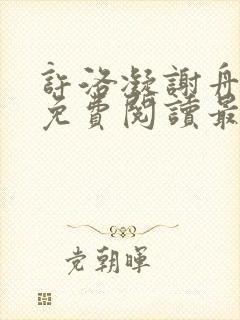 許洛凝謝舟
免費閱讀最
党朝暉